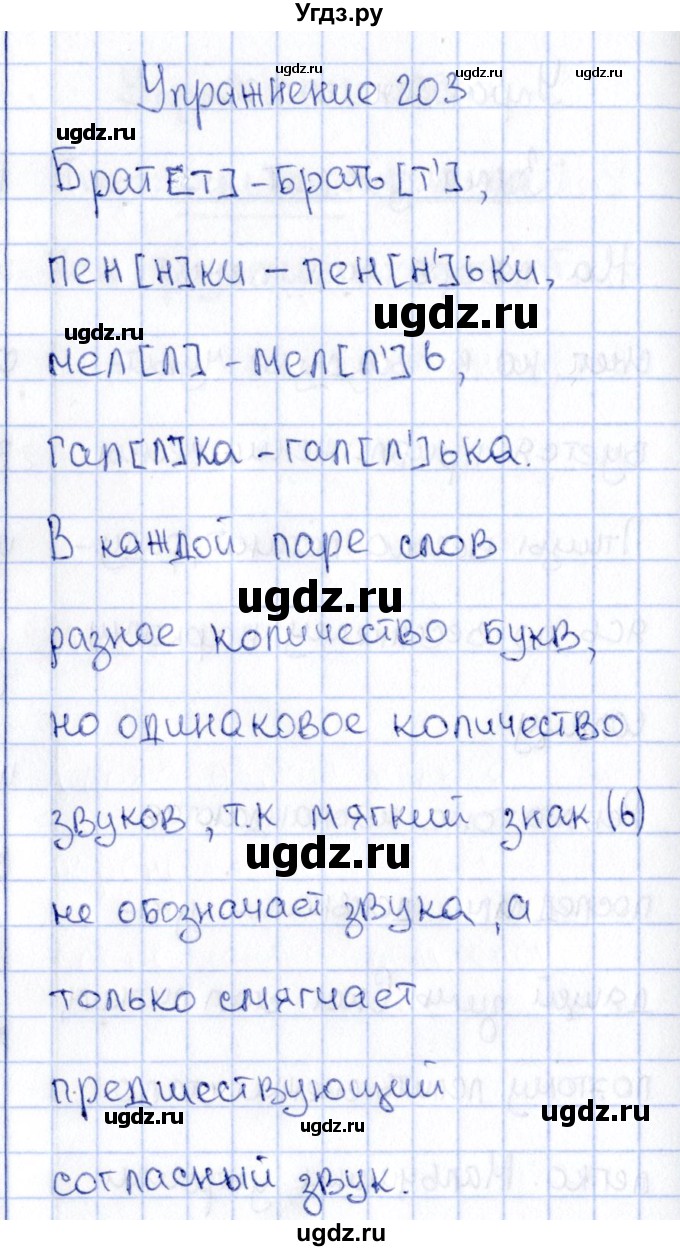 Угдз.ру
Упражнение 203
ugdz.ru
ugdz.ru
ugdz.ru
Брат[т] - брать [т'],
пен[н]ки - пен[н']ьки,
ugdz.ru
ugdz.ru
мел[л] - мел[л']ь,
гал[л]ка - гал[л']ька.
В каждой паре слов
ugdz.ru
разное количество букв,
но одинаковое количество
звуков, т.к мягкий знак (ь)
ugdz.ru
не обозначает звука, а
только смягчает
предшествующий
ugdz.ru
ugdz.ru
ugdz.ru
согласный звук.
ugdz.ru